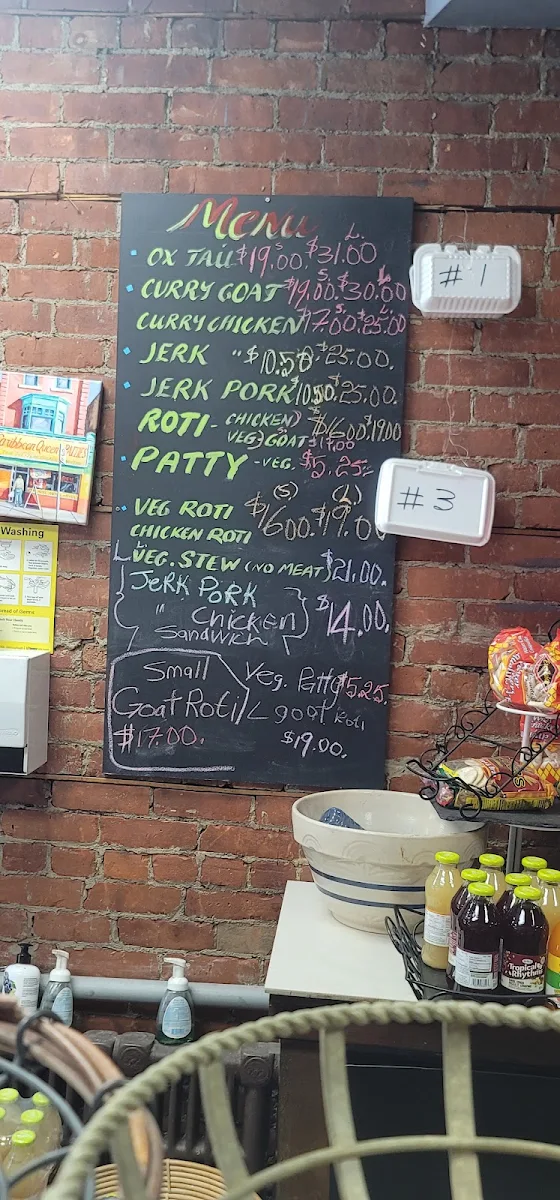 Menu
S. L.
OX TAIL $19.00. $31.00
CURRY GOAT $19.00. $30.00
CURRY CHICKEN 17.00. $25.00
JERK " $10.50 $25.00.
JERK PORK $10.50 $25.00.
ROTI - CHICKEN) $16.00 $19.00
VEG) GOAT $17.00
PATTY - VEG. $5.25
(S) (L)
VEG ROTI $16.00. $19.00
CHICKEN ROTI
VEG. STEW (NO MEAT) $21.00.
JERK PORK
" Chicken $14.00.
Sandwich
Small Veg. Patty $5.25.
Goat Roti L goat Roti
$17.00. $19.00.
#1
#3
Caribbean Queen PATTIES
Washing
Tropical
Rhythms